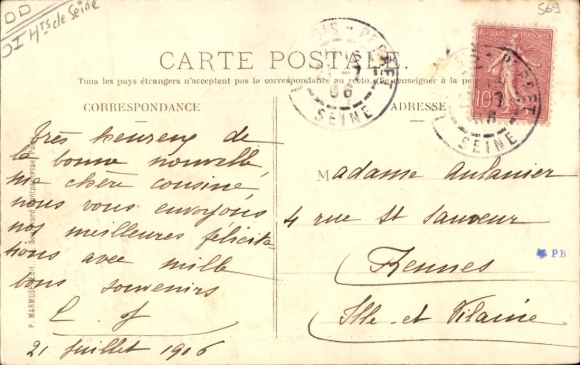 DD
DI Hts de Seine
569
CARTE POSTALE
Tous les pays étrangers n'acceptent pas la correspondance au recto. (Se renseigner à la
CORRESPONDANCE
ADRESSE
PERRET
SEINE
10
PERRET
SEINE
Très heureux de
la bonne nouvelle
ma chère cousine
nous vous envoyons
nos meilleures félicita-
tions avec mille
bons souvenirs
21 Juillet 1906
Madame Aulanier
4 rue St Sauveur
Rennes
Ille et Vilaine
PB